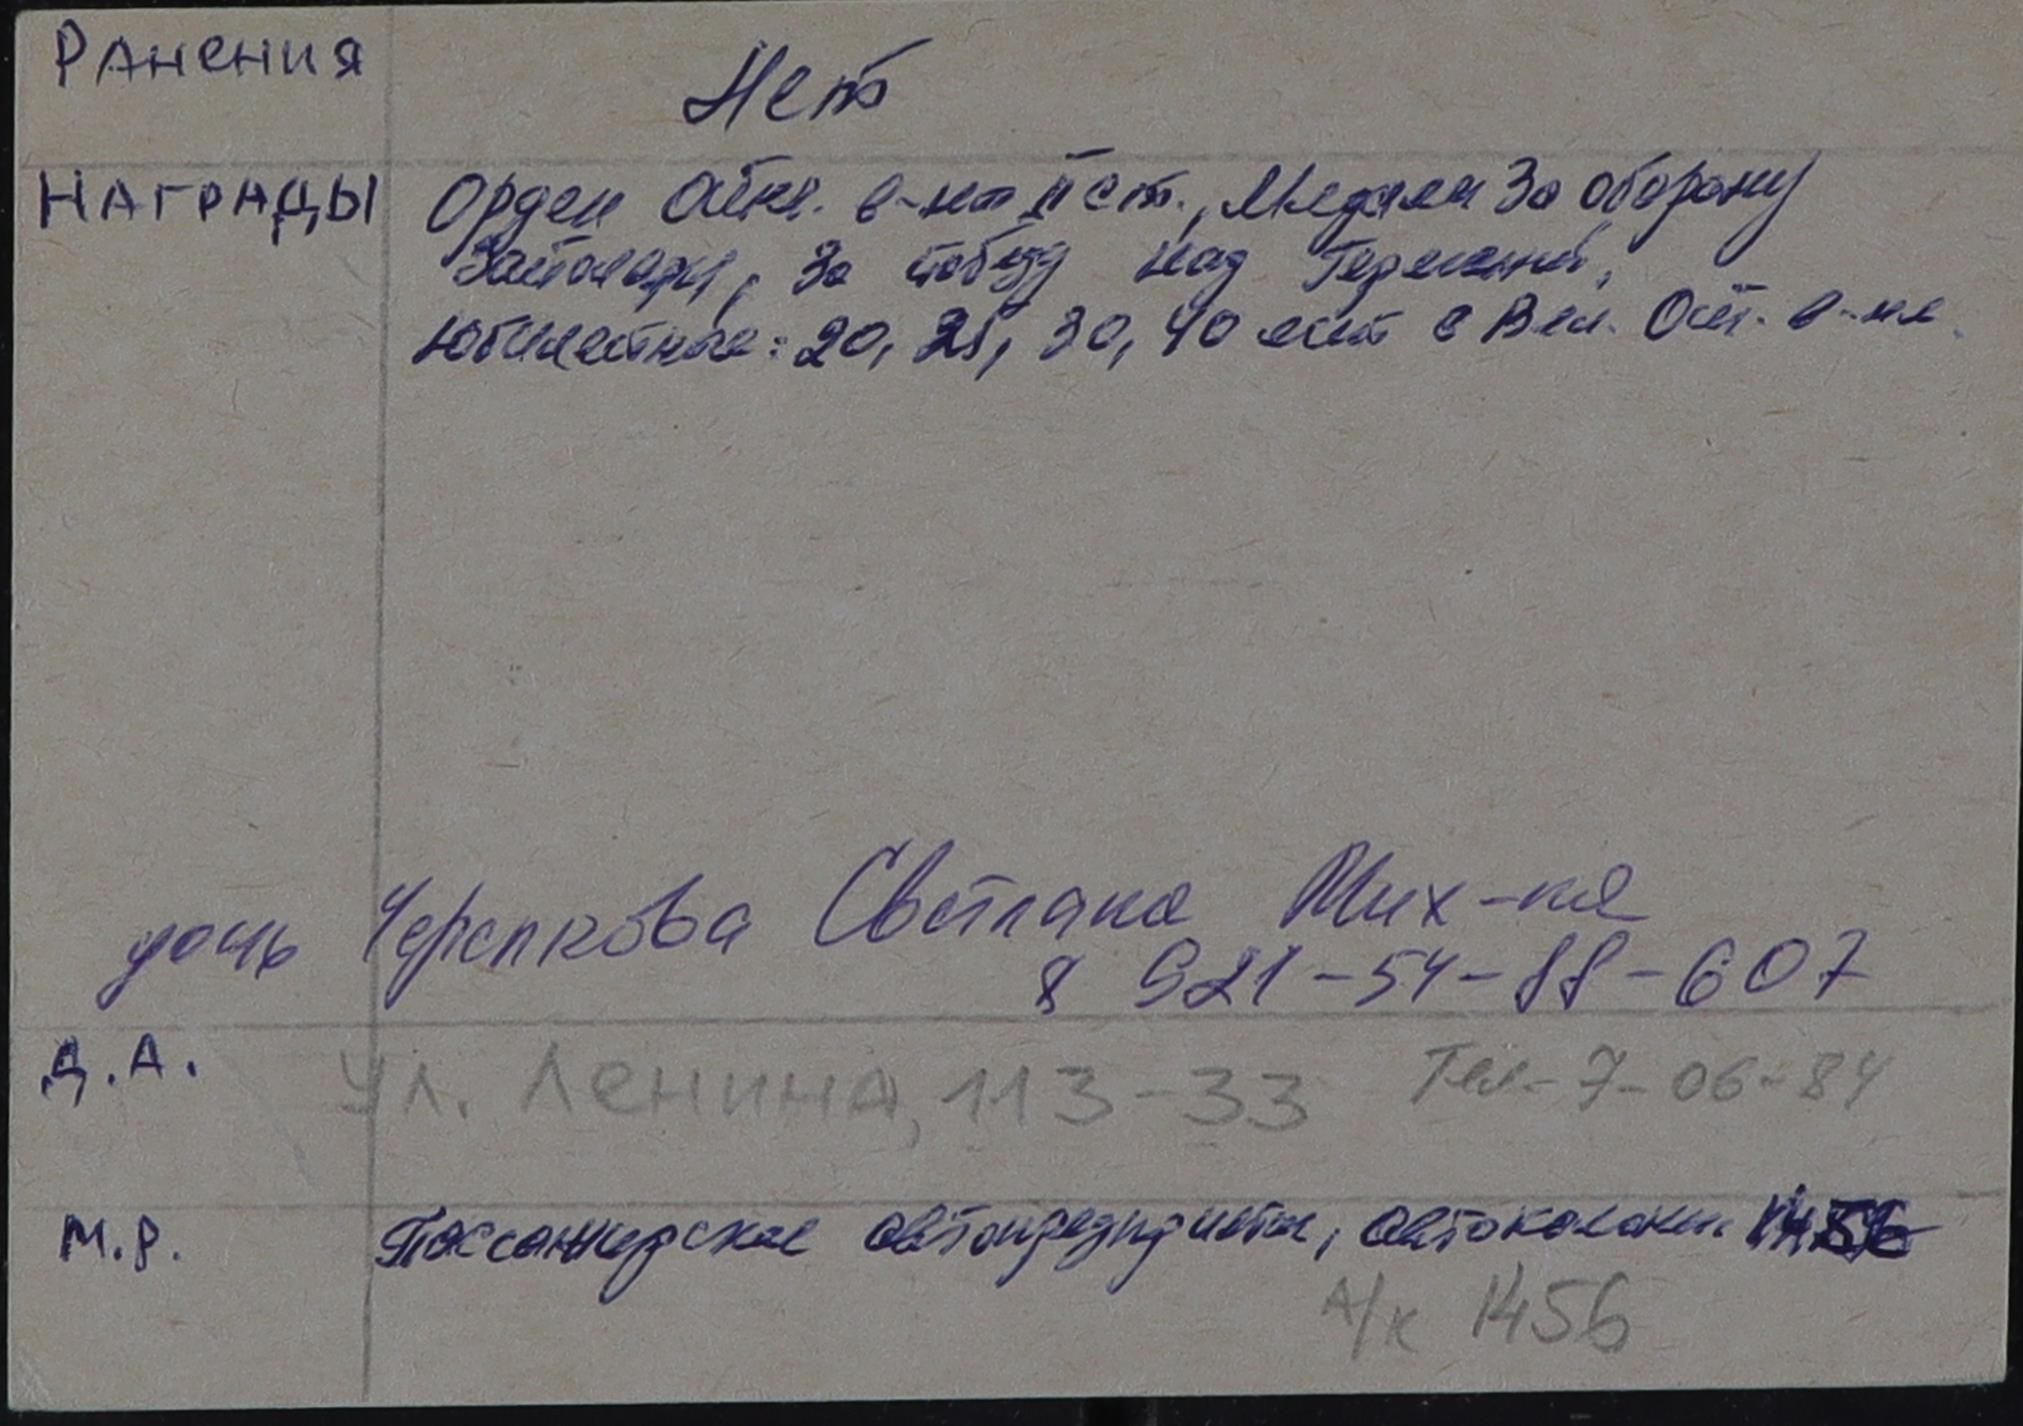 Ранения Нет
Награды Орден Отеч. в-ны II ст., Медали За оборону
Заполярья, За победу над Германией,
Юбилейные: 20, 25, 30, 40 лет с Вел. Отеч. в-не.
дочь Черепкова Светлана Мих-на
8 921-54-88-607
Д.А. ул. Ленина, 113-33 Тел- 7-06-84
М.Р. Пассажирское автопредприятие, автоколонна 1456
А/К 1456